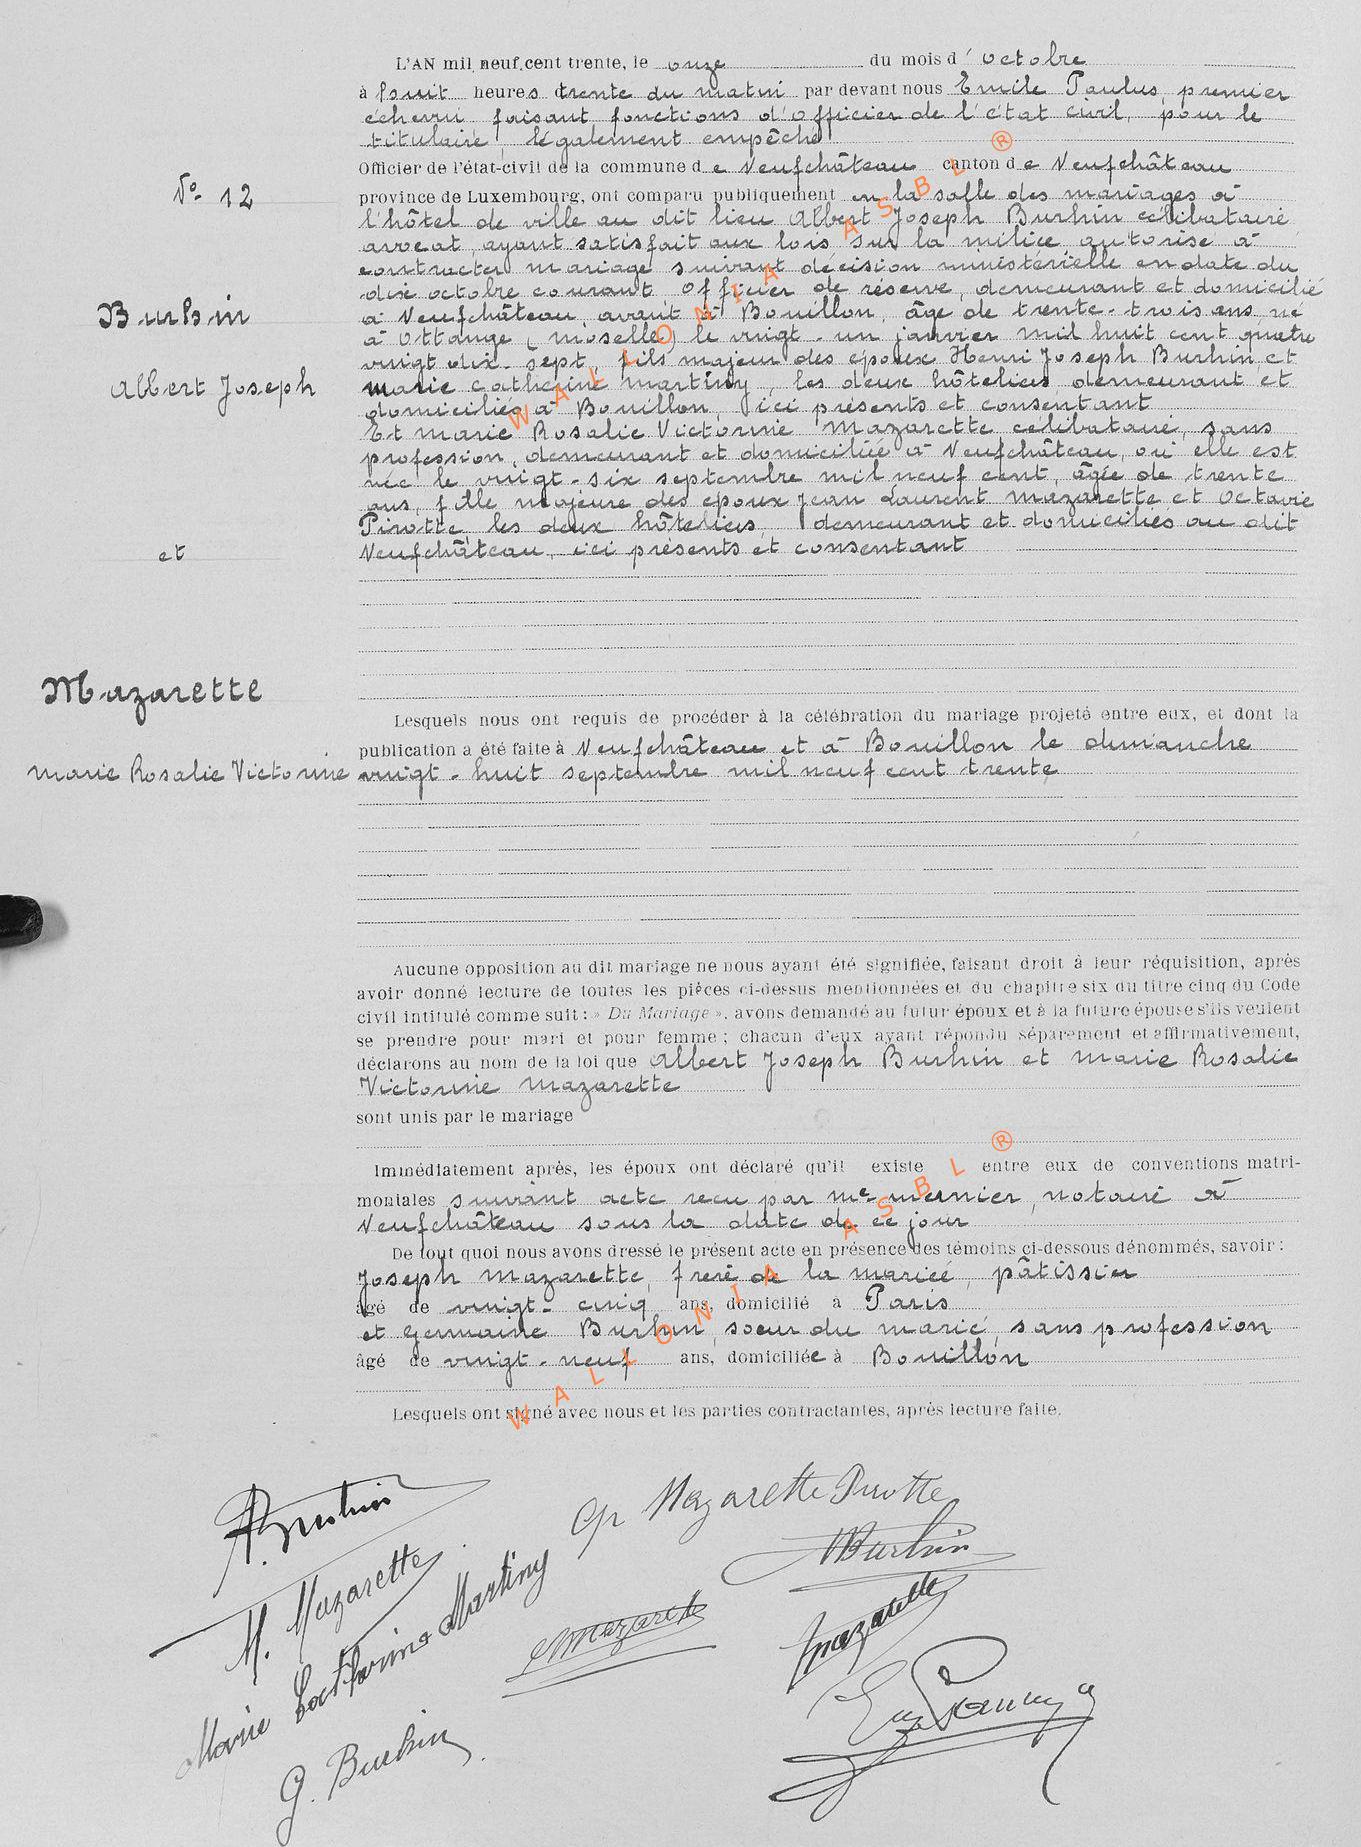 L'AN mil neuf cent trente, le onze du mois d' octobre
à huit heures trente du matin par devant nous Emile Paulus, premier
échevin faisant fonctions d'officier de l'état civil, pour le
titulaire, légalement empêché
Officier de l'état-civil de la commune de Neufchâteau canton de Neufchâteau
N° 12
province de Luxembourg, ont comparu publiquement en la salle des mariages à
l'hôtel de ville au dit lieu Albert Joseph Burhin célibataire
avocat, ayant satisfait aux lois sur la milice autorisé à
contracter mariage suivant décision ministérielle en date du
dix octobre courant, officier de réserve, demeurant et domicilié
Burhin
à Neufchâteau, avant à Bouillon, âgé de trente-trois ans, né
à Ottange (moselle) le vingt-un janvier mil huit cent quatre
vingt dix-sept, fils majeur des époux Henri Joseph Burhin et
Albert Joseph
marie catherine martiny, les deux hôteliers demeurant et
domiciliés à Bouillon, ici présents et consentant
Et marie Rosalie Victorine mazarette célibataire, sans
profession, demeurant et domiciliée à Neufchâteau, où elle est
née le vingt-six septembre mil neuf cent, âgée de trente
ans, fille majeure des époux Jean Laurent mazarette et Octavie
Pirotte, les deux hôteliers, demeurant et domiciliés au dit
et
Neufchâteau, ici présents et consentant
Mazarette
Lesquels nous ont requis de procéder à la célébration du mariage projeté entre eux, et dont la
publication a été faite à Neufchâteau et à Bouillon le dimanche
marie Rosalie Victorine
vingt-huit septembre mil neuf cent trente
Aucune opposition au dit mariage ne nous ayant été signifiée, faisant droit à leur réquisition, après
avoir donné lecture de toutes les pièces ci-dessus mentionnées et du chapitre six du titre cinq du Code
civil intitulé comme suit : » Du Mariage », avons demandé au futur époux et à la future épouse s'ils veulent
se prendre pour mari et pour femme ; chacun d'eux ayant répondu séparément et affirmativement,
déclarons au nom de la loi que Albert Joseph Burhin et marie Rosalie
Victorine mazarette
sont unis par le mariage
Immédiatement après, les époux ont déclaré qu'il existe entre eux de conventions matri-
moniales suivant acte reçu par me mernier, notaire à
Neufchâteau sous la date de ce jour
De tout quoi nous avons dressé le présent acte en présence des témoins ci-dessous dénommés, savoir :
Joseph mazarette, frère de la mariée, pâtissier
âgé de vingt-cinq ans, domicilié à Paris
et Germaine Burhin, soeur du marié, sans profession
âgé de vingt-neuf ans, domiciliée à Bouillon
Lesquels ont signé avec nous et les parties contractantes, après lecture faite.
WALLONIA ASBL ®
WALLONIA ASBL ®
A. Burhin
Mazarette Pirotte
Burhin
M. Mazarette
Marie Catharina Martiny
Mazarette
Mazarette
G. Burhin